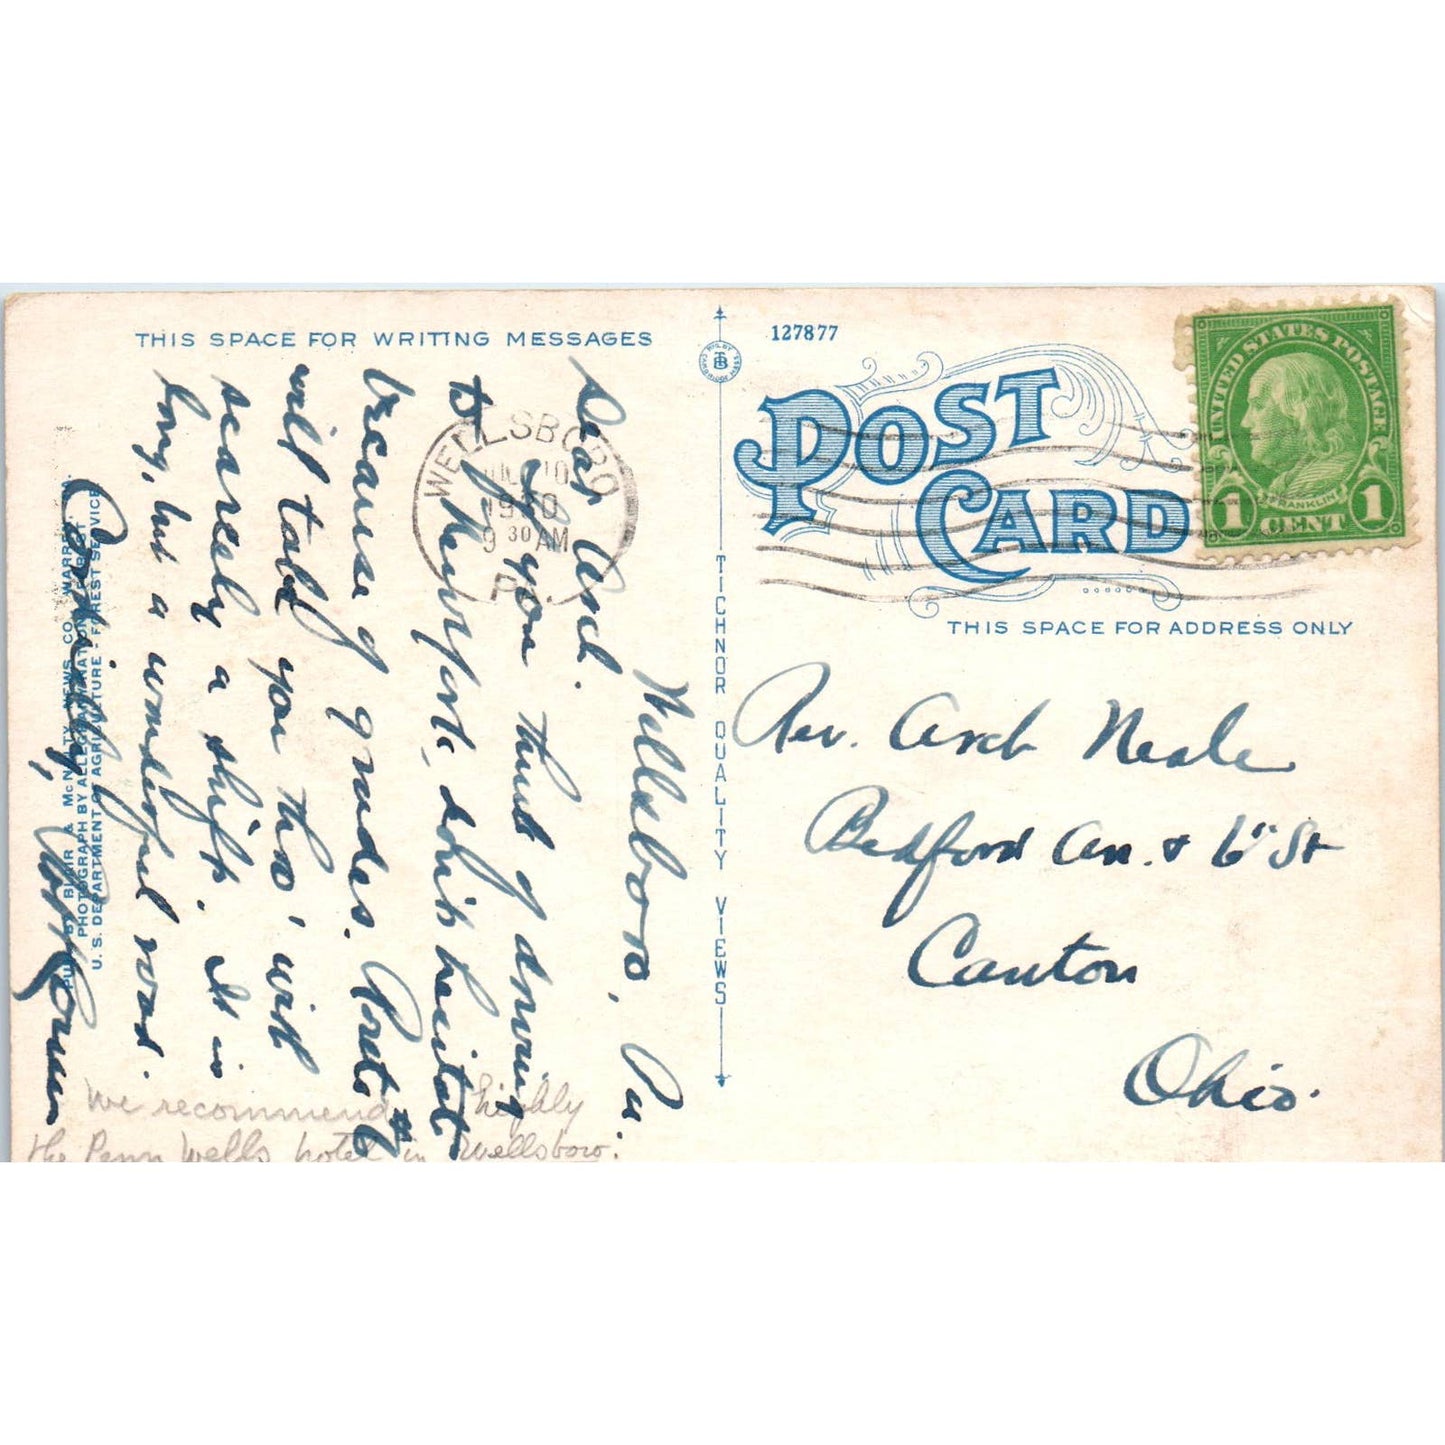 THIS SPACE FOR WRITING MESSAGES
Wellsboro, Pa.
Dear Arch.
If you think of driving
to Newport, don't hesitate
because of grades. Route #6
will take you thro' with
scarcely a shift. It is
long, but a wonderful road.
Cordially,
We recommend highly
the Penn Wells hotel in Wellsboro.
PUB. BY BLAIR & McNALTY NEWS CO., WARREN,
PHOTOGRAPH BY ALLEGHENY NATIONAL FOREST
U. S. DEPARTMENT OF AGRICULTURE - FOREST SERVICE
WELLSBORO
10
9 30 AM
PA
TICHNOR QUALITY VIEWS
TB
CAMBRIDGE MASS
127877
POST CARD
UNITED STATES POSTAGE
FRANKLIN
1 CENT 1
THIS SPACE FOR ADDRESS ONLY
Rev. Arch Neale
Bedford Av. & 6" St
Canton
Ohio.